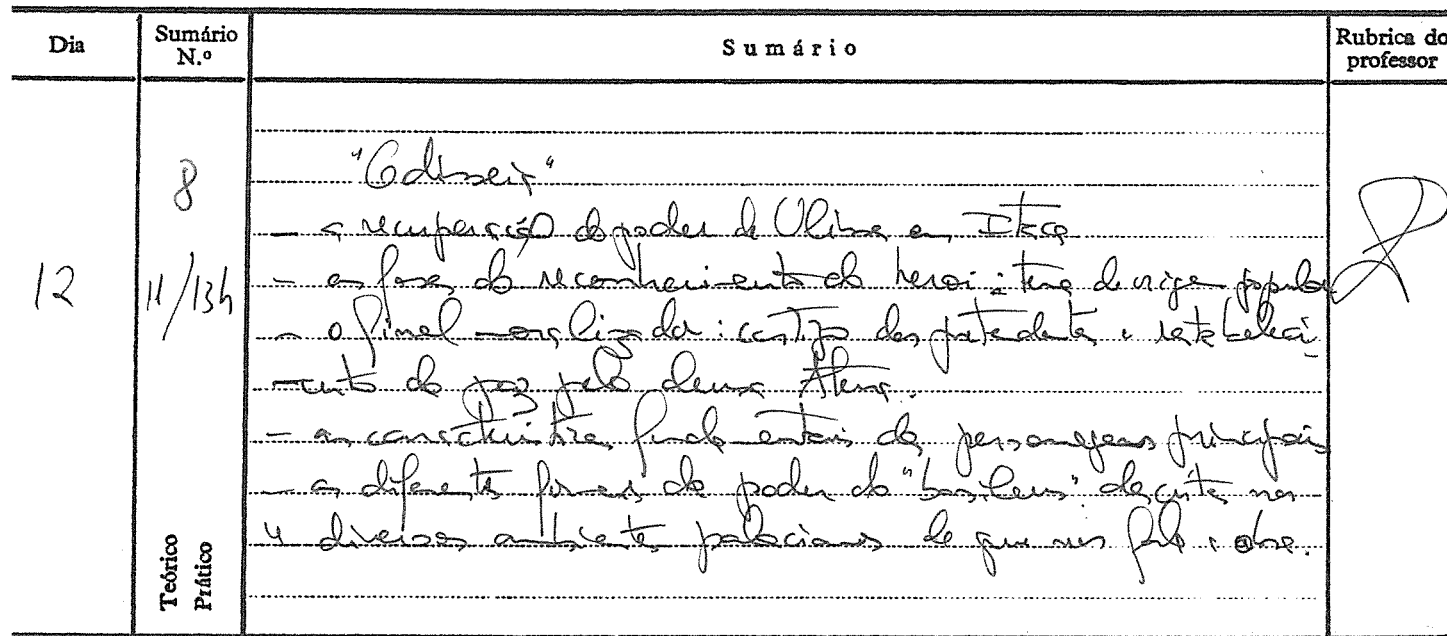 Dia
Sumário N.º
Sumário
Rubrica do professor
12
8
11/13h
Teórico
Prático
"Odisseia"
- a recuperação do poder de Ulisses em Ítaca
- as fases do reconhecimento do heroi: tema de origem popular
- o final moralizador: castigo dos pretendentes e restabeleci-
mento da paz pela deusa Atena.
- as características fundamentais das personagens principais
- as diferentes formas de poder do "basileus" descritas nos
4 diversos ambientes palacianos de que nos fala a obra.